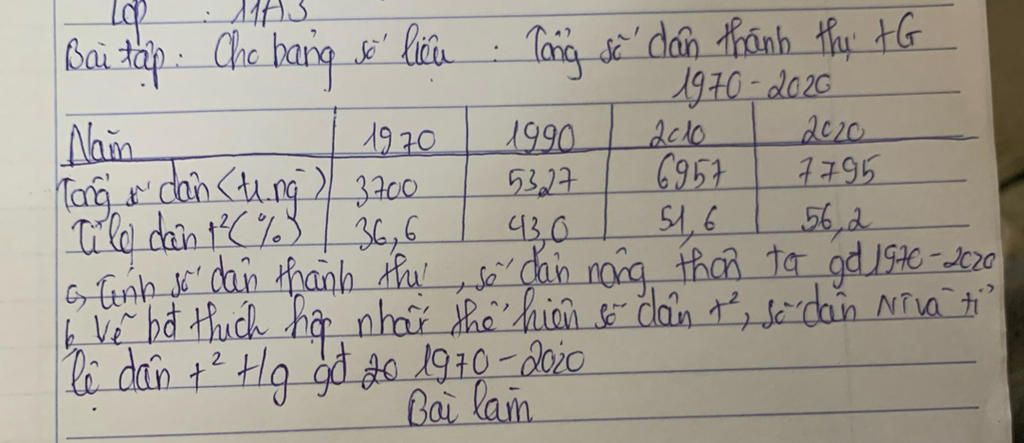 Lớp : 11A3
Bài tập : Cho bảng số liệu : Tổng số dân thành thị tG
1970 - 2020
Năm 1970 1990 2010 2020
Tổng số dân (tr.ng) 3700 5327 6957 7795
Tỉ lệ dân t² (%) 36,6 43,0 51,6 56,2
a, tính số dân thành thị, số dân nông thôn tg gđ 1970 - 2020
b, Vẽ bđ thích hợp nhất thể hiện số dân t², số dân NT và tỉ
lệ dân t² tg gđ 1970 - 2020
Bài làm